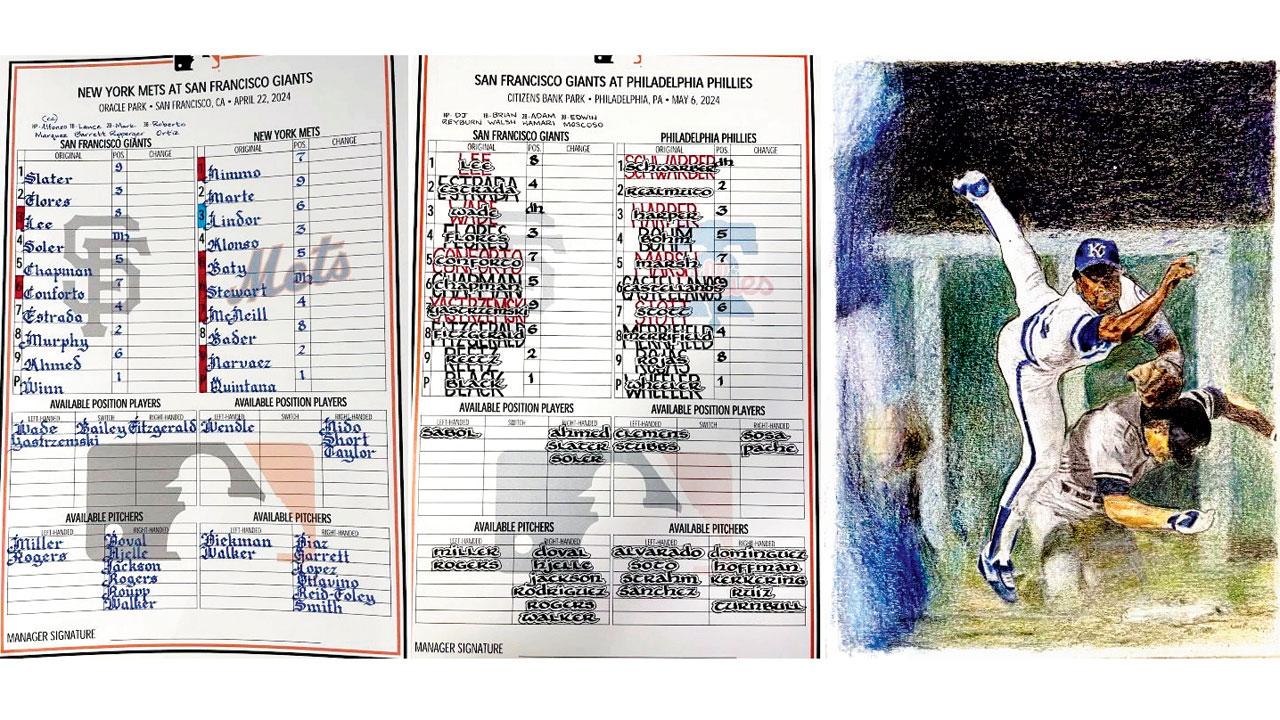 NEW YORK METS AT SAN FRANCISCO GIANTS
ORACLE PARK • SAN FRANCISCO, CA • APRIL 22, 2024
(cc)
HP-Alfonso 1B-Lance 2B-Mark 3B-Roberto
Marquez Barrett Ripperger Ortiz
SAN FRANCISCO GIANTS
ORIGINAL POS. CHANGE
1 Slater 9
2 Flores 3
Lee 8
4 Soler DH
5 Chapman 5
6 Conforto 7
7 Estrada 4
8 Murphy 2
9 Ahmed 6
P Winn 1
NEW YORK METS
ORIGINAL POS. CHANGE
Nimmo 7
2 Marte 9
3 Lindor 6
4 Alonso 3
Baty 5
Stewart DH
McNeill 4
8 Bader 8
Narvaez 2
Quintana 1
AVAILABLE POSITION PLAYERS
LEFT-HANDED SWITCH RIGHT-HANDED
Wade Bailey Fitzgerald
Yastrzemski
AVAILABLE POSITION PLAYERS
LEFT-HANDED SWITCH RIGHT-HANDED
Wendle Nido
Short
Taylor
Mets
AVAILABLE PITCHERS
LEFT-HANDED RIGHT-HANDED
Miller Doval
Rogers Hjelle
Jackson
Rogers
Roupp
Walker
AVAILABLE PITCHERS
LEFT-HANDED RIGHT-HANDED
Diekman Diaz
Walker Garrett
Lopez
Ottavino
Reid-Foley
Smith
MANAGER SIGNATURE
SAN FRANCISCO GIANTS AT PHILADELPHIA PHILLIES
CITIZENS BANK PARK • PHILADELPHIA, PA • MAY 6, 2024
HP-DJ 1B-BRIAN 2B-ADAM 3B-EDWIN
REYBURN WALSH HAMARI MOSCOSO
SAN FRANCISCO GIANTS
ORIGINAL POS. CHANGE
1 LEE LEE 8
2 ESTRADA ESTRADA 4
3 WADE WADE DH
4 FLORES FLORES 3
5 CONFORTO CONFORTO 7
6 CHAPMAN CHAPMAN 5
7 YASTRZEMSKI YASTRZEMSKI 9
8 FITZGERALD FITZGERALD 6
9 REETZ REETZ 2
P BLACK BLACK 1
PHILADELPHIA PHILLIES
ORIGINAL POS. CHANGE
1 SCHWARBER SCHWARBER DH
2 REALMUTO 2
3 HARPER HARPER 3
4 BOHM BOHM 5
5 MARSH MARSH 7
6 CASTELLANOS 9
7 STOTT STOTT 6
8 MERRIFIELD MERRIFIELD 4
9 ROJAS ROJAS 8
P WHEELER WHEELER 1
AVAILABLE POSITION PLAYERS
LEFT-HANDED SWITCH RIGHT-HANDED
SABOL AHMED
SLATER
SOLER
AVAILABLE POSITION PLAYERS
LEFT-HANDED SWITCH RIGHT-HANDED
CLEMENS SOSA
STUBBS PACHE
AVAILABLE PITCHERS
LEFT-HANDED RIGHT-HANDED
MILLER DOVAL
ROGERS HJELLE
JACKSON
RODRIGUEZ
ROGERS
WALKER
AVAILABLE PITCHERS
LEFT-HANDED RIGHT-HANDED
ALVARADO DOMINGUEZ
SOTO HOFFMAN
STRAHM KERKERING
SANCHEZ RUIZ
TURNBULL
MANAGER SIGNATURE
KC